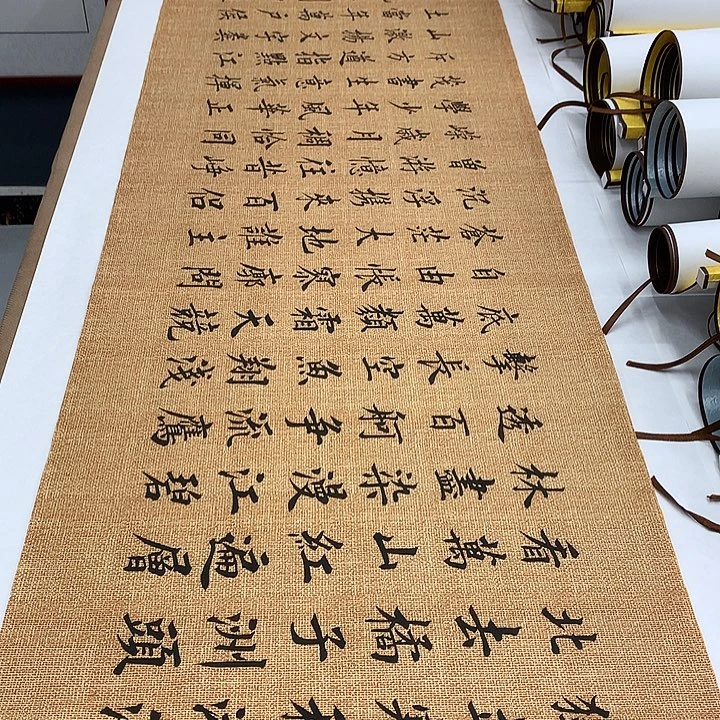 北去橘子洲頭
看萬山紅遍層
林盡染漫江碧
透百舸爭流鷹
擊長空魚翔淺
底萬類霜天競
自由悵寥廓問
蒼茫大地誰主
沉浮攜來百侶
曾游憶往昔崢
嶸歲月稠恰同
學少年風華正
茂書生意氣揮
斥方遒指點江
山激揚文字糞
土當年萬戶侯